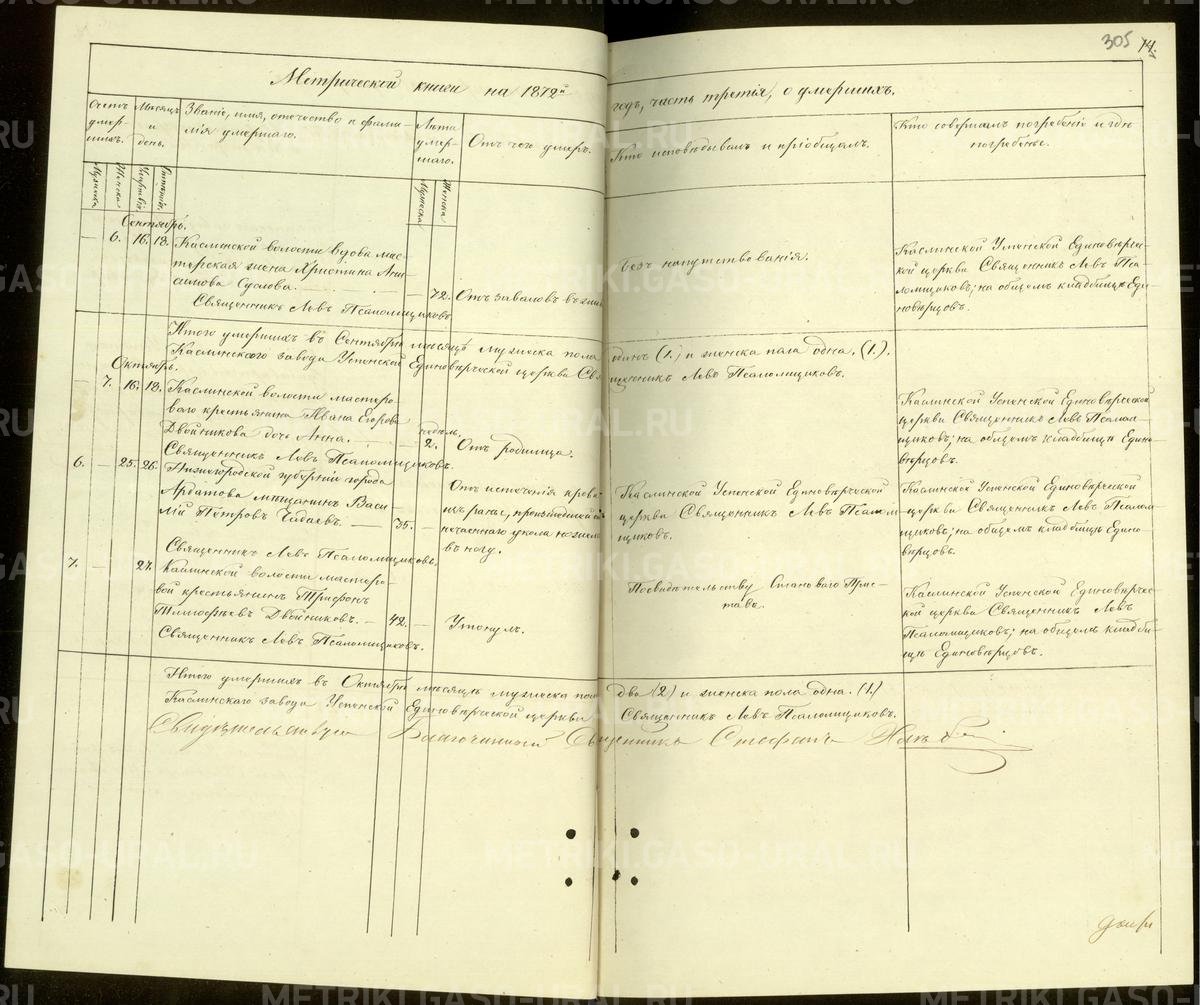 305 14.
Метрической книги на 1872й годъ, часть третія, о умершихъ.
Счетъ умер- шихъ.
Мѣсяцъ и день.
Званіе, имя, отечество и фами- лія умершаго.
Лѣта умер- шаго.
Отъ чего умеръ.
Кто исповѣдывалъ и пріобщалъ.
Кто совершалъ погребеніе и гдѣ погребены.
Мужеска Женска Смерти
Мужеска Женска
Сентябрь.
— 6. 16. 18. Каслинской волости вдова мас-
терская жена Христина Ани-
симова
Священникъ Левъ Псаломщиковъ.
— 72. Отъ заваловъ въ
Безъ напутствованія.
Каслинской Успенской Единовѣрчес-
кой церкви Священникъ Левъ Пса-
ломщиковъ; на общемъ кладбищѣ Еди-
новѣрцовъ.
Итого умершихъ въ Сентябрѣ мѣсяцѣ мужеска пола одинъ (1.) и женска пола одна. (1.).
Каслинскаго завода Успенской Единовѣрческой церкви Священникъ Левъ Псаломщиковъ.
Октябрь.
— 7. 16. 18. Каслинской волости мастеро-
ваго крестьянина Ивана Егорова
Двойникова дочь Анна.
Священникъ Левъ Псаломщиковъ.
— недѣль 2. Отъ родимца.
Каслинской Успенской Единовѣрческой
церкви Священникъ Левъ Псалом-
щиковъ; на общемъ кладбищѣ Едино-
вѣрцовъ.
6. — 25. 26. Нижегородской губерніи города
Ардатова мѣщанинъ Васи-
лій Петровъ Чадаевъ. — 35. —
Священникъ Левъ Псаломщиковъ.
Отъ истеченія крови
изъ раны, происшедшей
нечаяннаго укола ножемъ
въ ногу.
Каслинской Успенской Единовѣрческой
церкви Священникъ Левъ Псалом-
щиковъ.
Каслинской Успенской Единовѣрческой
церкви Священникъ Левъ Псалом-
щиковъ; на общемъ кладбищѣ Едино-
вѣрцовъ.
7. — 27. Каслинской волости мастеро-
вой крестьянинъ Трифонъ
Тимофѣевъ Двойниковъ. — 42. — Утонулъ.
Священникъ Левъ Псаломщиковъ.
По свидѣтельству Становаго Прис-
тава.
Каслинской Успенской Единовѣрчес-
кой церкви Священникъ Левъ
Псаломщиковъ; на общемъ кладби-
щѣ Единовѣрцовъ.
Итого умершихъ въ Октябрѣ мѣсяцѣ мужеска пола два (2) и женска пола одна. (1.)
Каслинскаго завода Успенской Единовѣрческой церкви Священникъ Левъ Псаломщиковъ.
Благочинный Священникъ Стефанъ
METRIKI.GASO-URAL.RU